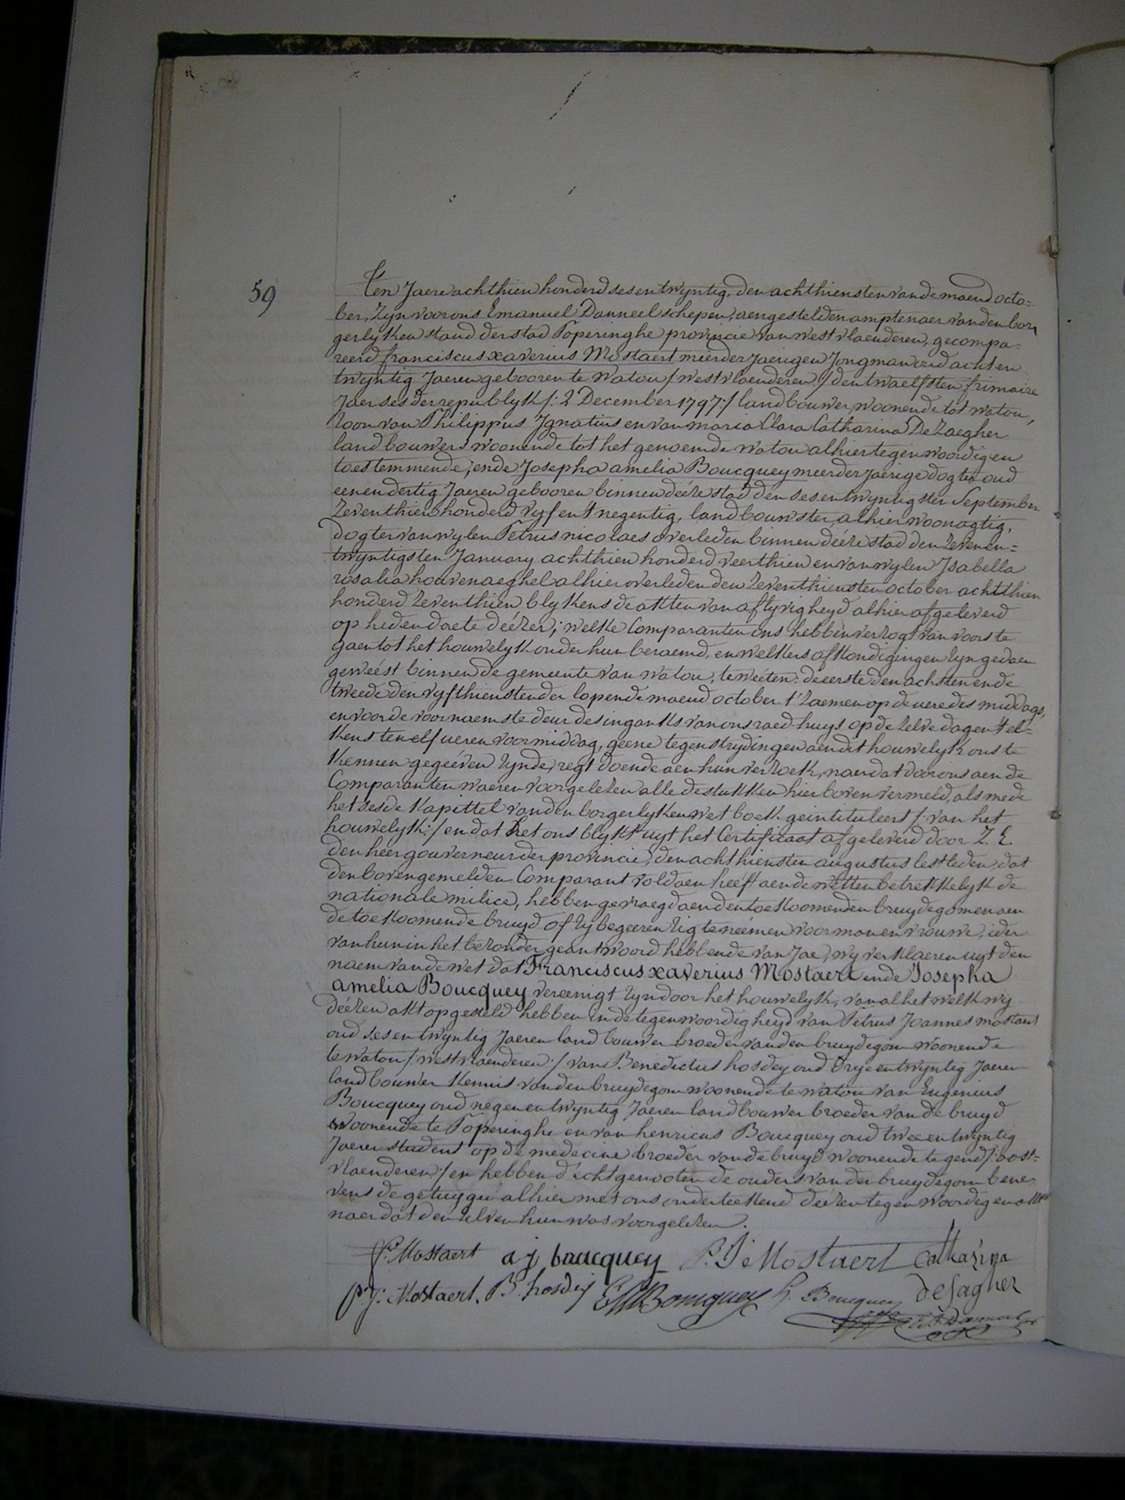 59
Ten Jaere achthien honderd ses en twyntig, den achthiensten van de maend octo-
ber, Zyn voor ons Emanuel Danneel schepen, aengestelden amptenaer van den bor
gerlyken stand der stad Poperinghe provincie van westvlaenderen, gecompa-
reerd franciscus xaverius Mostaert meerderjaerigen Jongman oud acht en
twyntig Jaeren gebooren te Watou /westvlaenderen/ den twaelfsten frimaire
Jaer ses der republyk /: 2 December 1797 :/ landbouwer, woonende tot watou,
Zoon van Philippus Ignatius en van maria Clara Catharina De Zaegher
landbouwers woonende tot het genoemde watou alhier tegenwoordig en
toestemmende; ende Josepha amelia Boucquey meerderjaerige dogter oud
een en dertig Jaeren gebooren binnen deéze stad den ses en twyntigsten September
Zeventhien honderd vyf en negentig, landbouwster alhier woonagtig,
dogter van wylen Petrus nicolaes overleden binnen deéze stad den Zeven en-
twyntigsten January achthien honderd veerthien en van wylen Isabella
rosalia houvenaeghel alhier overleden den Zeventhiensten october achthien
honderd Zeventhien blykens de akten van aflyvigheyd alhier afgeleverd
op heden daete deézer; welke Comparanten ons hebben verzogt van voorste
gaen tot het houwelyk onder hun beraemd, en welkers afkondigingen zyn gedaen
geweést binnen de gemeente van watou, te weeten: de eerste den achsten ende
tweede den vyfthiensten der lopende maend october t'zaemen op de uere des middags,
en voor de voornaemste deur des ingangks van ons raed-huys op de zelve dagen tel-
kens ten elf ueren voormiddag, geene tegenstrydingen aen dit houwelyk ons te
kennen gegeéven zynde, regt doende aen hun verzoek, naer dat door ons aen de
Comparanten waeren voorgelezen alle de stukken hier boven vermeld, als mede
het sesde kapittel van den borgerlyken wetboek geintituleert /: van het
houwelyk :/ en dat het ons blykt uyt het Certificaat afgeleverd door Z. E.
den heer gouverneur der provincie, den achthiensten augustus lestleden, dat
den bovengemelden Comparant voldaen heeft aen de wetten betrekkelyk de
nationale milice, hebben gevraegd aen den toekoomenden bruydegom en aen
de toekoomende bruyd of zy begeeren zig te neémen voor man en vrouwe, ider
van hun in het bezonder geantwoord hebbende van Jae, wy verklaeren uyt den
naem van de wet dat Franciscus xaverius Mostaert ende Josepha
amelia Boucquey vereenigt zyn door het houwelyk, van al het welk wy
deézen akt opgesteld hebben in de tegenwoordigheyd van Petrus Joannes mostaert
oud ses en twyntig Jaeren landbouwer broeder van den bruydegom woonende
te watou /westvlaenderen:/ van Benedictus hosdey oud dryen twyntig Jaeren
landbouwer kennis van den bruydegom woonende te watou van Eugenius
Boucquey oud negen en twyntig Jaeren landbouwer broeder van de bruyd
woonende te Poperinghe en van henricus Boucquey oud twee en twyntig
Jaeren student op de medecine broeder van de bruyd woonende te gend /: oost-
vlaenderen:/ en hebben d'echtgenooten de ouders van den bruydegom bene
vens de getuygen alhier met ons onderteekend deézen tegenwoordigen akt
naer dat den zelven hun was voorgelezen.
f. Mostaert a j boucquey P. J. Mostaert Catharina
p. J. Mostaert. B hosdey E Boucquey h. Boucquey de Sagher